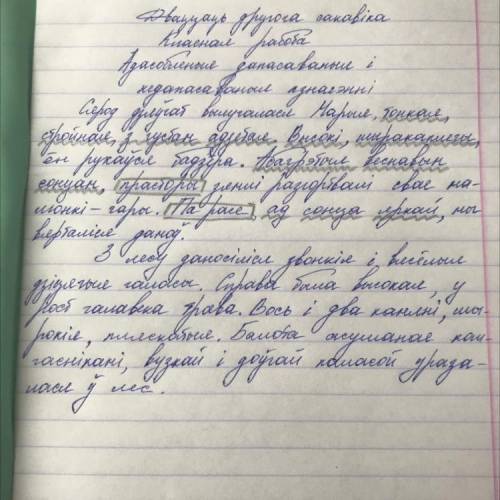 Дваццаць другога сакавіка
Класная работа
Адасобленыя дапасаваныя і
недапасаваныя азначэнні
Сярод дзяўчат вылучалася Марыля, тонкая,
стройная, з густам адзетая. Высокі, шыракаплечы,
ён рухаўся бадзёра. Абагрэтыя веснавым
сонцам, прасторы зямлі разгортвалі свае ма-
люнкі-гары. Па расе, ад сонца яркай, мы
вярталіся дамоў.
З лесу даносіліся звонкія і вясёлыя
дзіцячыя галасы. Справа была высокая, у
рост чалавека трава. Вось і два камяні, шы-
рокія, пляскатыя. Балота асушанае кан-
, вузкай і доўгай паласой урэза-
лася ў лес.